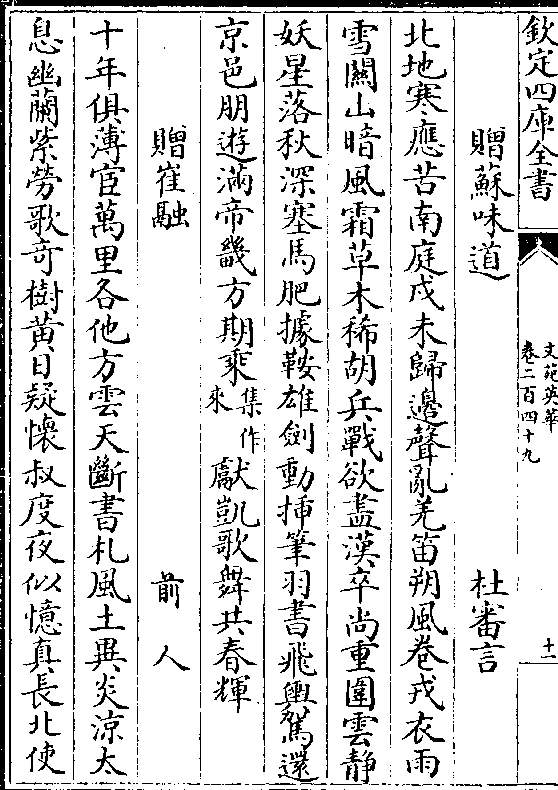 欽定四庫全書
文苑英華
卷二百四十九
十一
贈蘇味道 杜審言
北地寒應苦南庭戍未歸邊聲亂羌笛朔風卷戎衣雨
雪關山暗風霜草木稀胡兵戰欲盡漢卒尚重圍雲静
妖星落秋深塞馬肥據鞍雄劍動揷筆羽書飛輿駕還
京邑朋遊滿帝畿方期乗集作來獻凱歌舞共春輝
贈崔融 前人
十年俱薄宦萬里各他方雲天斷書札風土異炎涼太
息幽蘭紫勞歌竒樹黄日疑懐叔度夜似憶真長北使